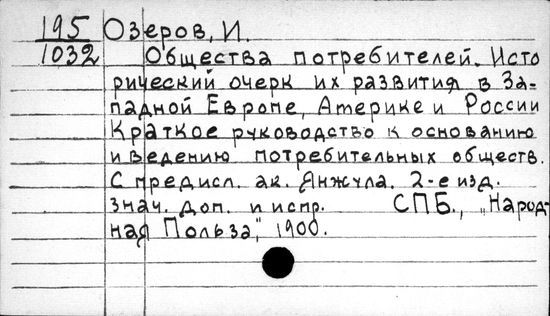 195 Озеров, И.
1032 Общества потребителей. Исто
рический очерк их развития в За-
падной Европе, Америке и России
Краткое руководство к основанию
и ведению потребительных обществ.
С предисл. ак. Янжула. 2-е изд.
знач. доп. и испр. СПБ., „Народ-
ная Польза", 1900.